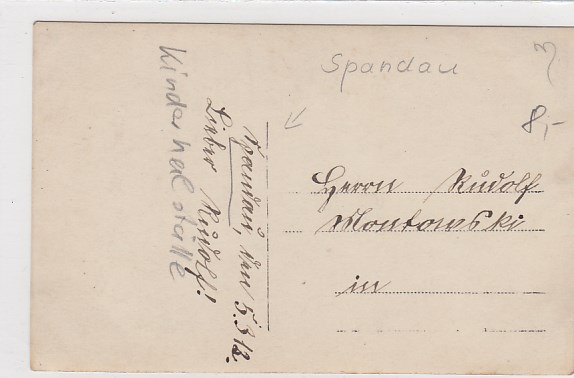 Spandau
8,-
Kinderheilstätte
Spandau, den 5.3.18.
Lieber Rudolf!
Herrn Rudolf
Montowski
in